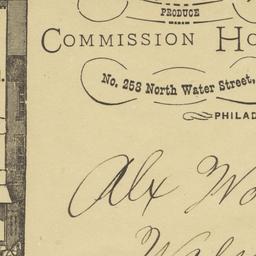 PRODUCE
COMMISSION HO
No. 258 North Water Street,
PHILAD
Alx W